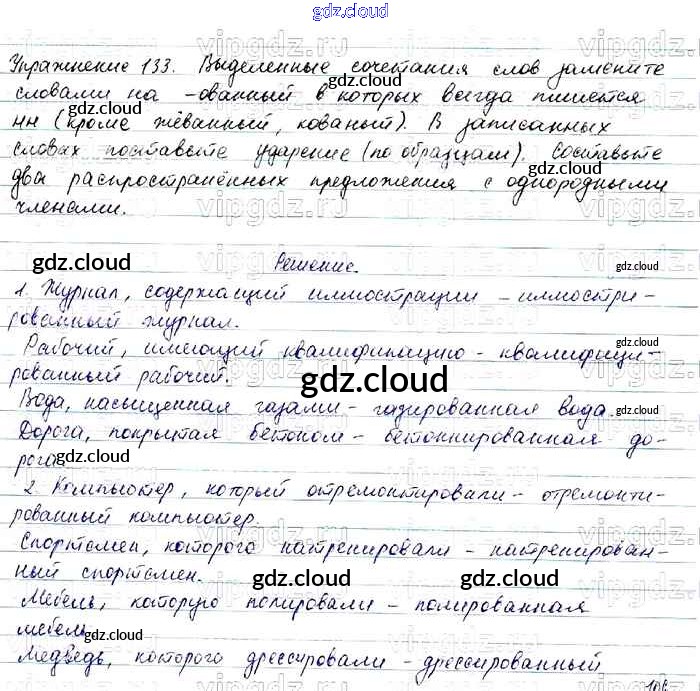 gdz.cloud
Упражнение 133. Выделенные сочетания слов замените
словами на -ованный в которых всегда пишется
нн (кроме жёванный, кованый). В записанных
словах поставьте ударение (по образцам). Составьте
два распространённых предложения с однородными
членами.
Решение.
1. Журнал, содержащий иллюстрации - иллюстри-
рованный журнал.
Рабочий, имеющий квалификацию - квалифици-
рованный рабочий.
Вода, насыщенная газами - газированная вода.
Дорога, покрытая бетоном - бетоннированная до-
рога
2. Компьютер, который отремонтировали - отремонти-
рованный компьютер
Спортсмен, которого натренировали - натренирован-
ный спортсмен.
Мебель, которую полировали - полированная
мебель
Медведь, которого дрессировали - дрессированный